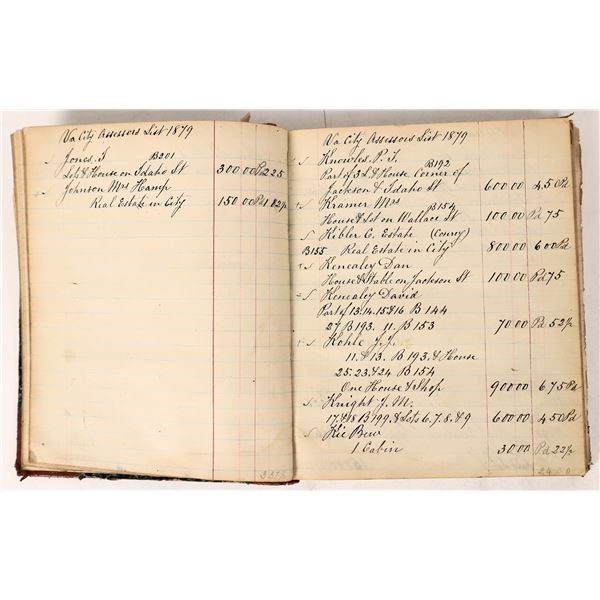 Va City Assessors List 1879
Jones. T B201
Lot & House on Idaho St 300.00 Pd 2 25
Johnson Mrs Hamp
Real Estate in City 150.00 Pd 1.02½
Va City Assessors List 1879
S Knowles, P. T. B192
Part of 3 L & House Corner of
Jackson & Idaho St 600.00 4 50 Pd
S Kramer Mrs B154
House & Lot on Wallace St 100.00 Pd 75
S Kibler C. Estate (Conrey)
B155 Real Estate in City 800.00 6 00 Pd
S Kenealey Dan
House & Stable on Jackson St 100.00 Pd 75
S Kenealey David
Part of 13. 14. 15 & 16 B 144
27 B 193. 11. B 153 70.00 Pd 52½
S Kohle J. J.
11. & 13. B 193. & House
25. 23. & 24 B 154
One House & Shop 900.00 6 75 Pd
S Knight J. M.
17. & 18 B 199. & Lots 6. 7. 8. & 9 600.00 4 50 Pd
S Kie Bew
1 Cabin 30.00 Pd 22½